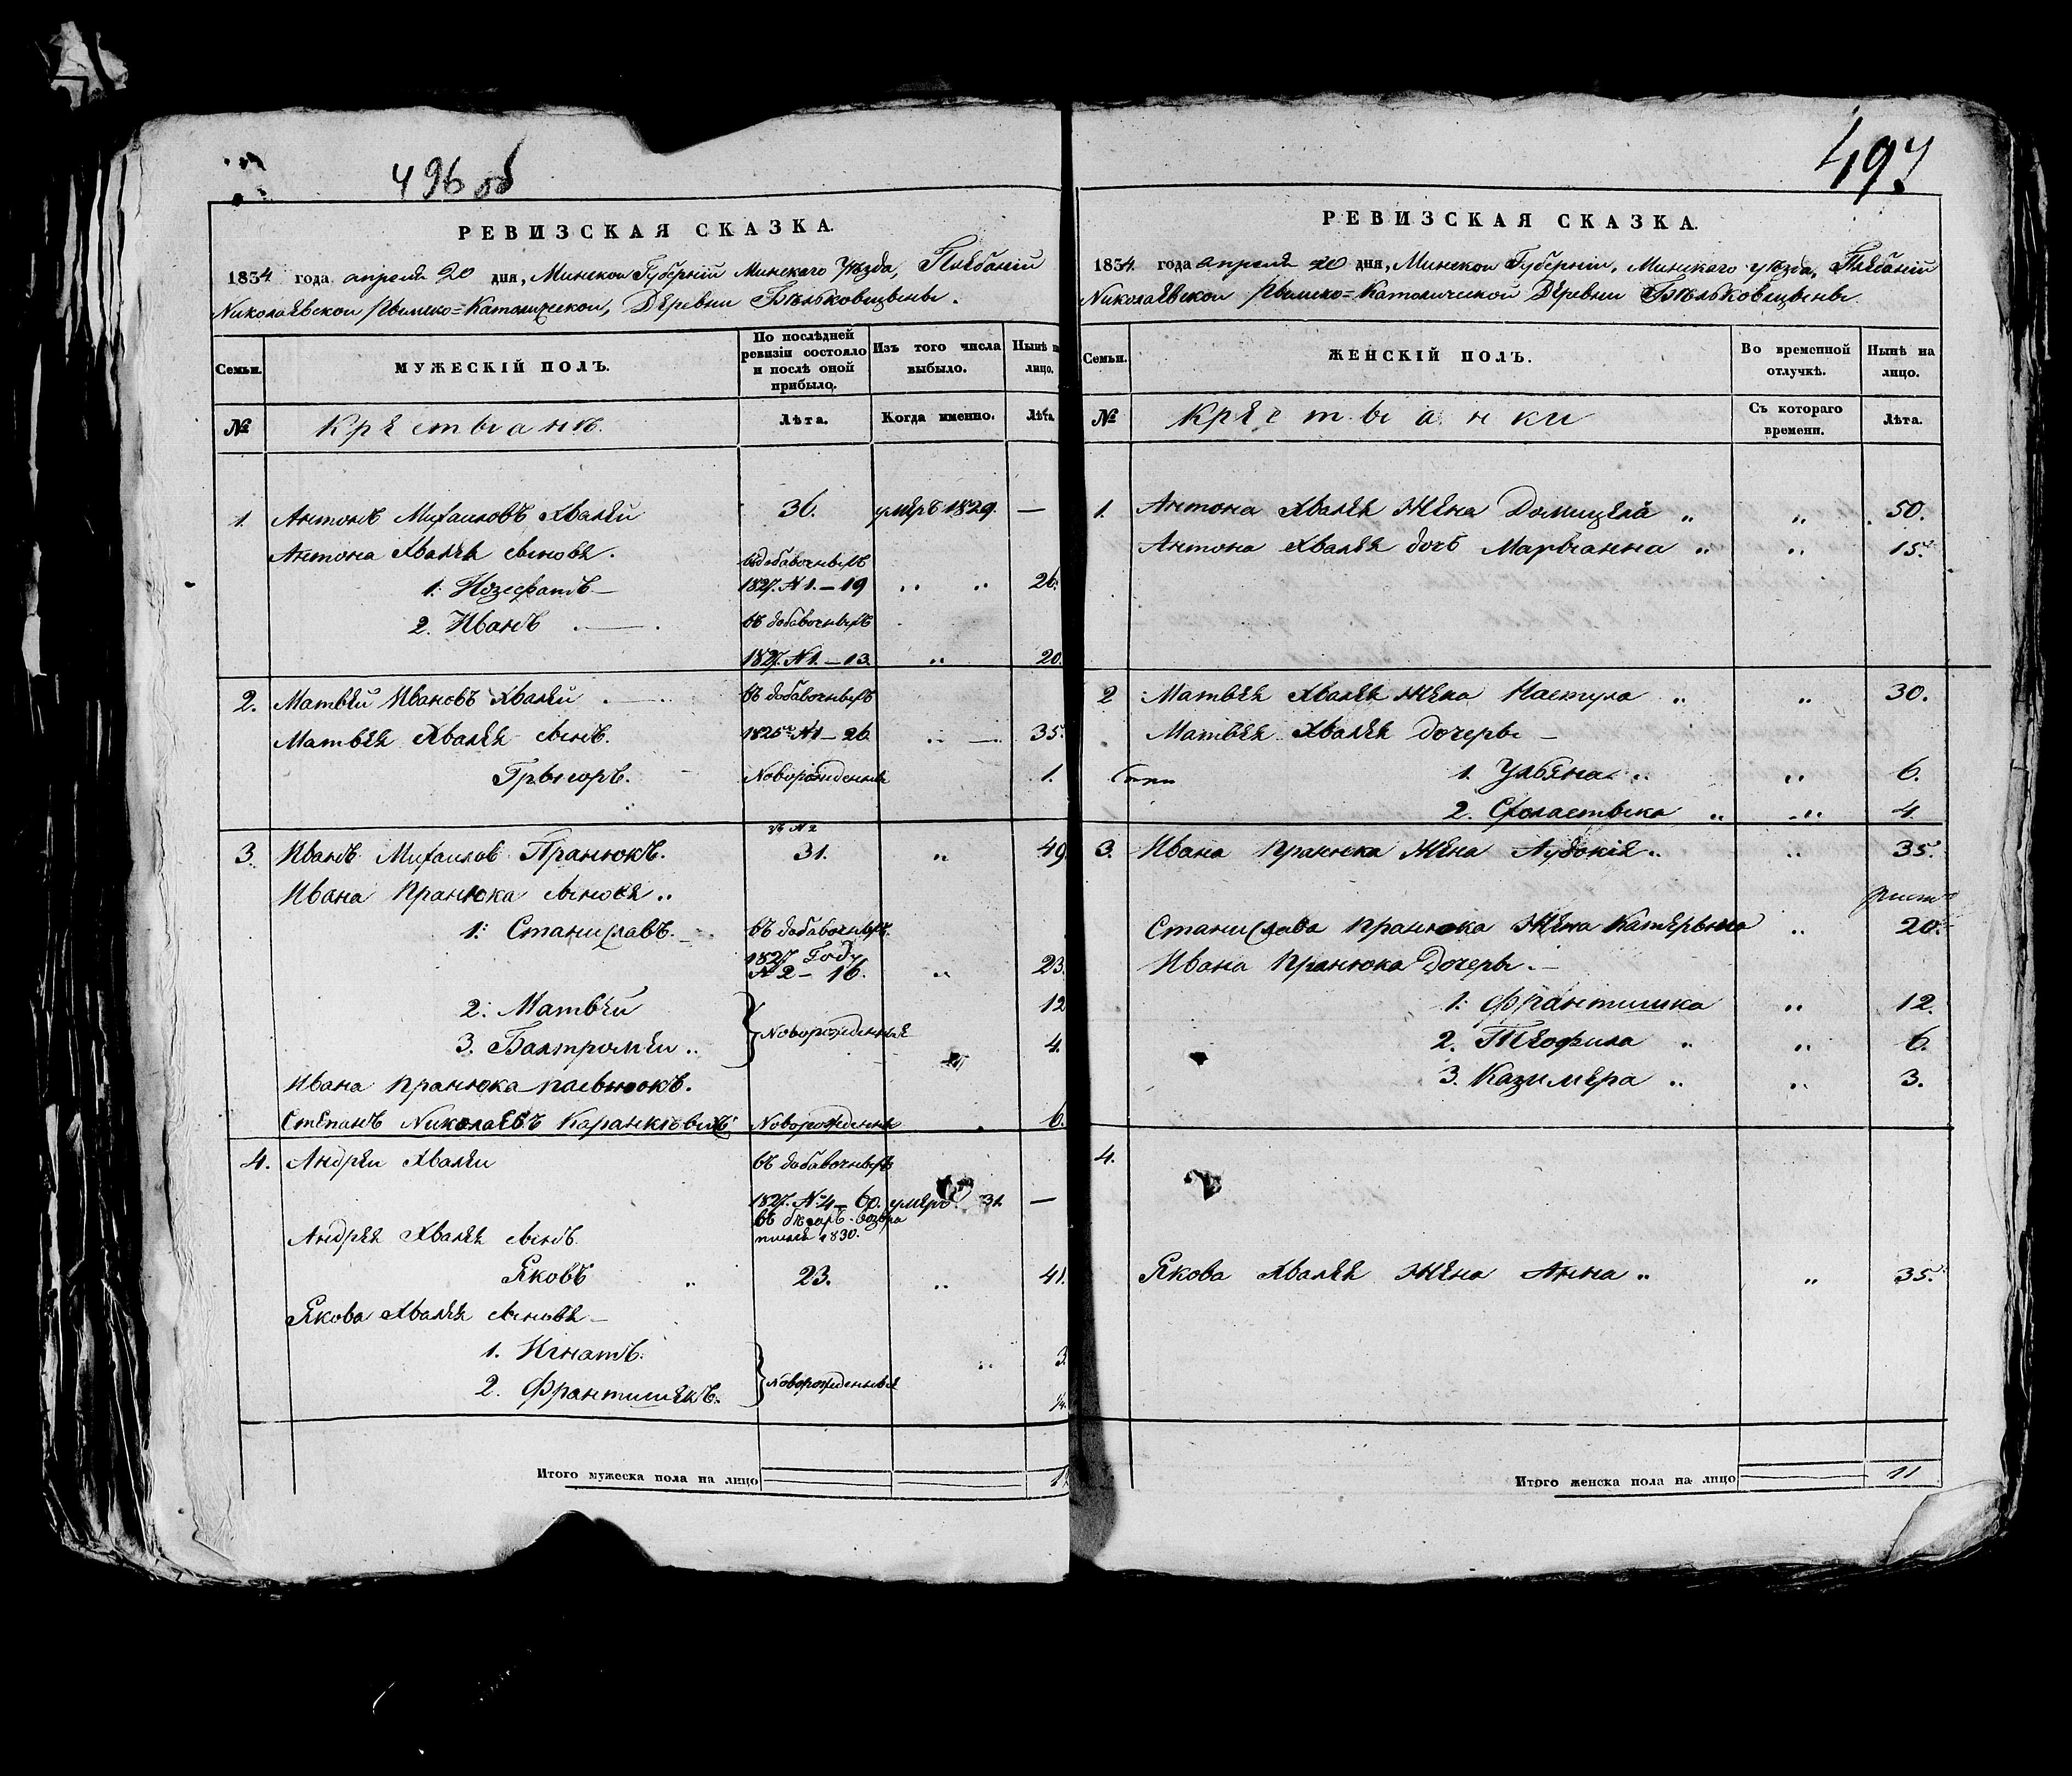 496 об
РЕВИЗСКАЯ СКАЗКА.
1834 года апреля 20 дня, Минской Губерній Минскаго Уѣзда, Плебаній
Николаевской Рымско=Католической, Деревни Бѣльковщизны.
Семьи. МУЖЕСКІЙ ПОЛЪ. По послѣдней ревизіи состояло и послѣ оной прибыло. Изъ того числа выбыло. Нынѣ на лицо.
№ Крестьянѣ. Лѣта. Когда именно. Лѣта
1. Антонъ Михаиловъ Хвалей 31. умеръ 1829. —
Антона Хвалея сыновя. въ добавочныхъ
1. Иозефатъ — 1827. № 1. — 19 „ „ 26.
2. Иванъ въ добавочныхъ
1827. № 1. — 13. „ 20.
2. Матвей Ивановъ Хвалей въ добавочныхъ
Матвея Хвалея сынъ. 1825 № 1 — 26 „ — 35.
Грыгоръ. Новорожденный 1.
№ 2
3. Иванъ Михаилов Пранюкъ. 31. „ 49
Ивана Пранюка сыновя „
1. Станиславъ. въ добавочныхъ.
1827 Году
№ 2 — 16. „ 23.
2. Матвей 12
3. Балтромей „ } Новорожденныя 4.
Ивана Пранюка пасынокъ.
Степанъ Николаевъ Новорожденный 6.
4. Андрей Хвалей въ добавочныхъ
1827. № 4 — 60. умеръ 31 —
Андрея Хвалея сынъ 1830.
Яковъ „ 23. „ 41.
Якова Хвалея сыновя —
1. Игнатъ. „ 3.
2. Франтишекъ. } Новорожденныя ¼.
Итого мужеска пола на лицо
497
РЕВИЗСКАЯ СКАЗКА.
1834. года апреля 20 дня, Минской Губерніи, Минскаго уѣзда, Плебаній
Николаевской Рымско=Католической Деревни Бѣльковщизны.
Семьи. ЖЕНСКІЙ ПОЛЪ. Во временной отлучкѣ. Нынѣ на лицо.
№ Крестьянки Съ котораго времени. Лѣта.
1. Антона Хвалея Жена Домицеля „ „ 50.
Антона Хвалея дочъ Марьянна „ „ 15.
2 Матвея Хвалея Жена Настула „ „ 30.
Матвея Хвалея дочеры —
1. Ульяна „ „ 6.
2. Сфоластыка „ „ 4.
3. Ивана Пранюка Жена Аудокія „ „ 35.
Станислава Пранюка Жена Катерына „ 20.
Ивана Пранюка Дочеры. —
1. Франтишка „ 12.
2. Теофила „ „ 6.
3. Казимера „ „ 3.
4.
Якова Хвалея Жена Анна „ „ 35.
Итого женска пола на лицо 11